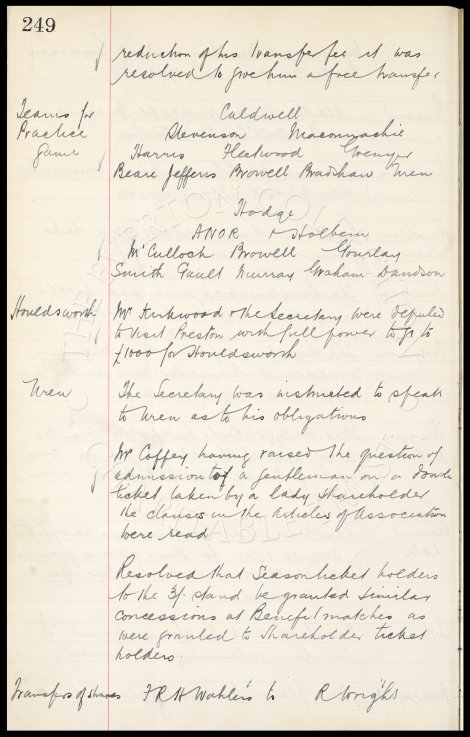 249
reduction of his transfer fee it was
resolved to give him a free transfer
Teams for
Practice
Game
Caldwell
Stevenson Maconnachie
Harris Fleetwood Grenyer
Beare Jefferis Browell Bradshaw Wren
Hodge
A N OR & Holbem
McCulloch Browell Gourlay
Smith Gault Murray Graham Davidson
Houldsworth
Mr Kirkwood & the Secretary were deputed
to visit Preston with full power to go to
£1000 for Houldsworth
Wren
The Secretary was instructed to speak
to Wren as to his obligations
Mr Coffey having raised the question of
admission of a gentleman on a
ticket, taken by a lady Shareholder
the clauses in the Articles of Association
were read
Resolved that Season ticket holders
to the 3/- stand be granted similar
concessions at Benefit matches as
were granted to Shareholder ticket
holders.
Transfers of shares F R H Wahlers to R Wright